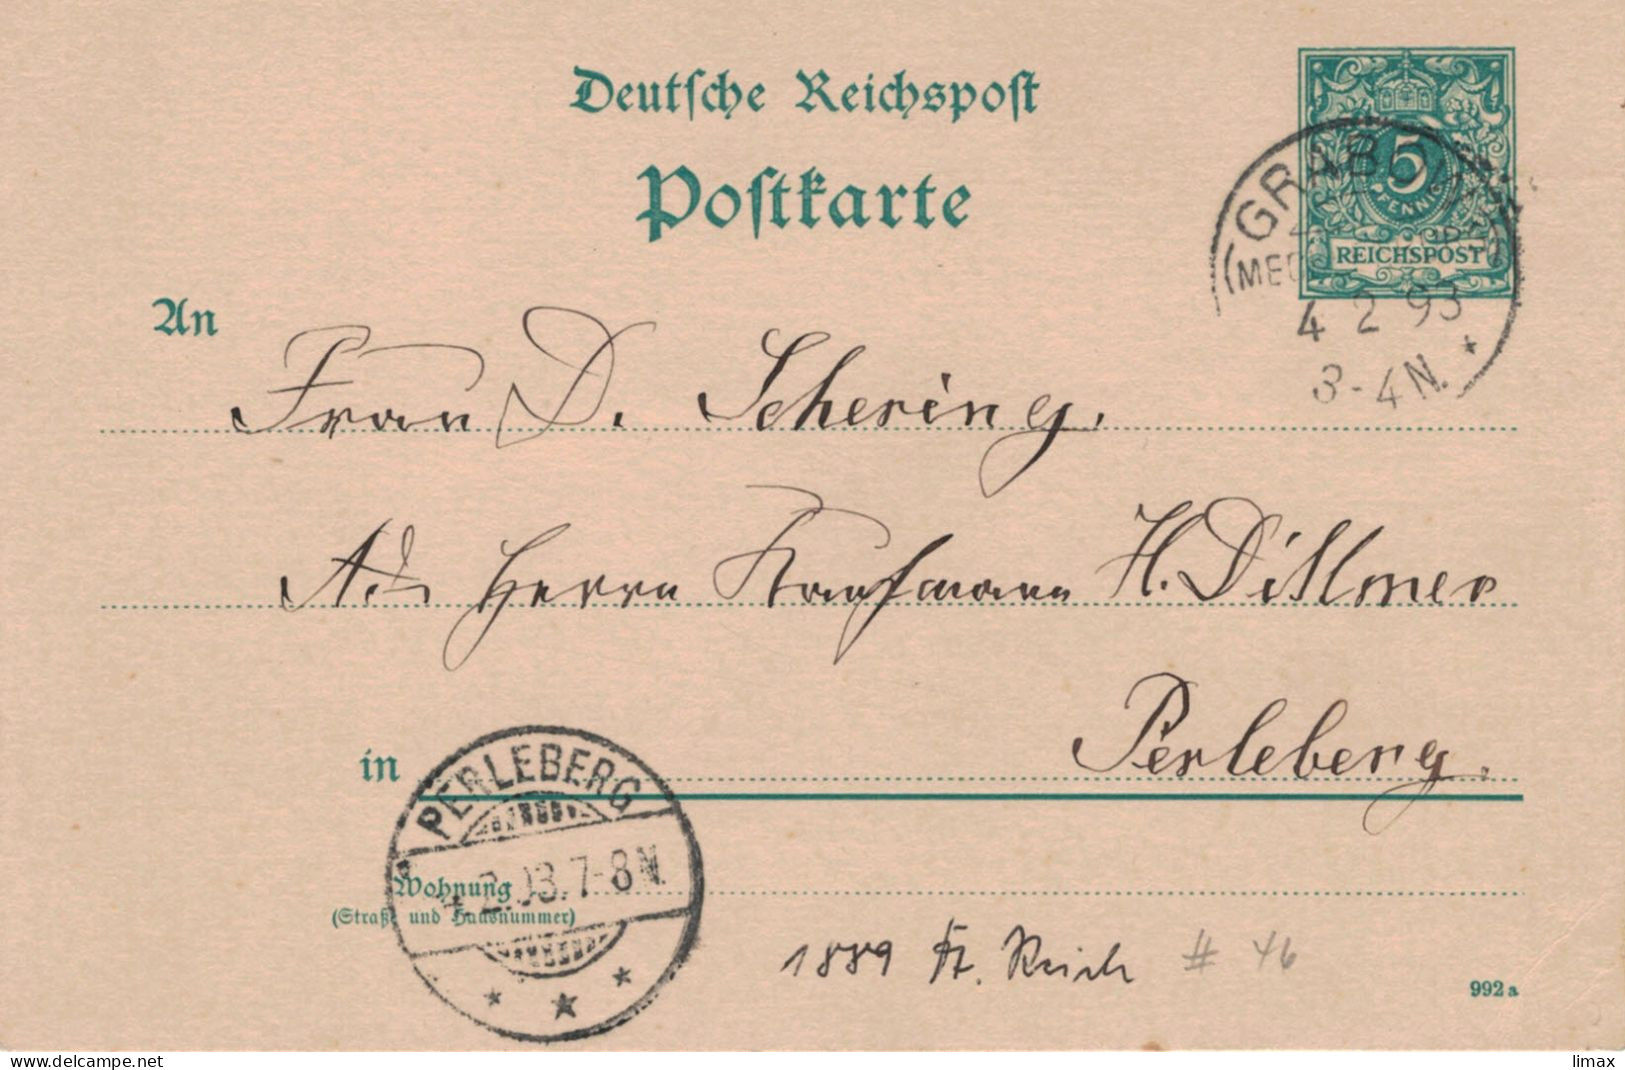 Deutsche Reichspost
Postkarte
5
PFENNIG
REICHSPOST
GRABOW
(MECK
4 2 93
3-4N.
An
Frau D. Schering.
Ad. Herrn Kaufmann H. Dittmer
Perleberg.
in
PERLEBERG
4.2.93.7-8N.
Wohnung
(Straße und Hausnummer)
1889 Reich # 46
992 a
limax